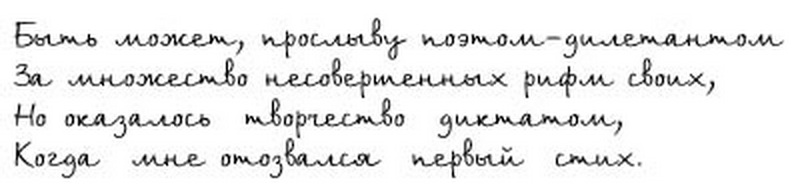 Быть может, прослыву поэтом-дилетантом
За множество несовершенных рифм своих,
Но оказалось творчество диктатом,
Когда мне отозвался первый стих.